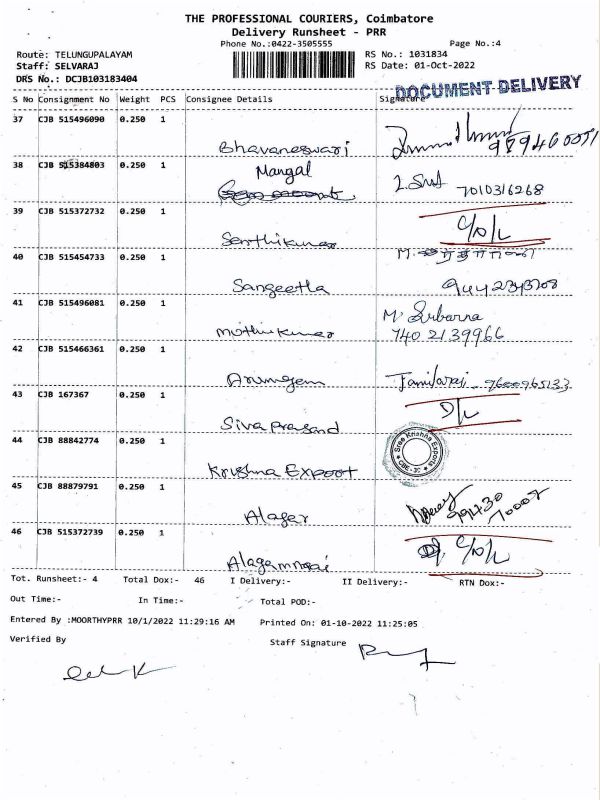 THE PROFESSIONAL COURIERS, Coimbatore
Delivery Runsheet - PRR
Phone No.:0422-3505555 Page No.:4
Route: TELUNGUPALAYAM RS No.: 1031834
Staff: SELVARAJ RS Date: 01-Oct-2022
DRS No.: DCJB103183404
DOCUMENT DELIVERY
S No Consignment No Weight PCS Consignee Details Signature
37 CJB 515496090 0.250 1
Bhavaneswari
38 CJB 515384803 0.250 1 Mangal
L. 7010316268
39 CJB 515372732 0.250 1
Senthilkumar
40 CJB 515454733 0.250 1 M.
Sangeetha
41 CJB 515496081 0.250 1 M.
Muthukumar 740 2139966
42 CJB 515466361 0.250 1
Arumugam 9600965133
43 CJB 167367 0.250 1 D/L
Siva Prasand
44 CJB 88842774 0.250 1 Sree Krishna Exports
Krishna Expoot
45 CJB 88879791 0.250 1
Alager 99430
70007
46 CJB 515372739 0.250 1
Tot. Runsheet:- 4 Total Dox:- 46 I Delivery:- II Delivery:- RTN Dox:-
Out Time:- In Time:- Total POD:-
Entered By :MOORTHYPRR 10/1/2022 11:29:16 AM Printed On: 01-10-2022 11:25:05
Verified By Staff Signature